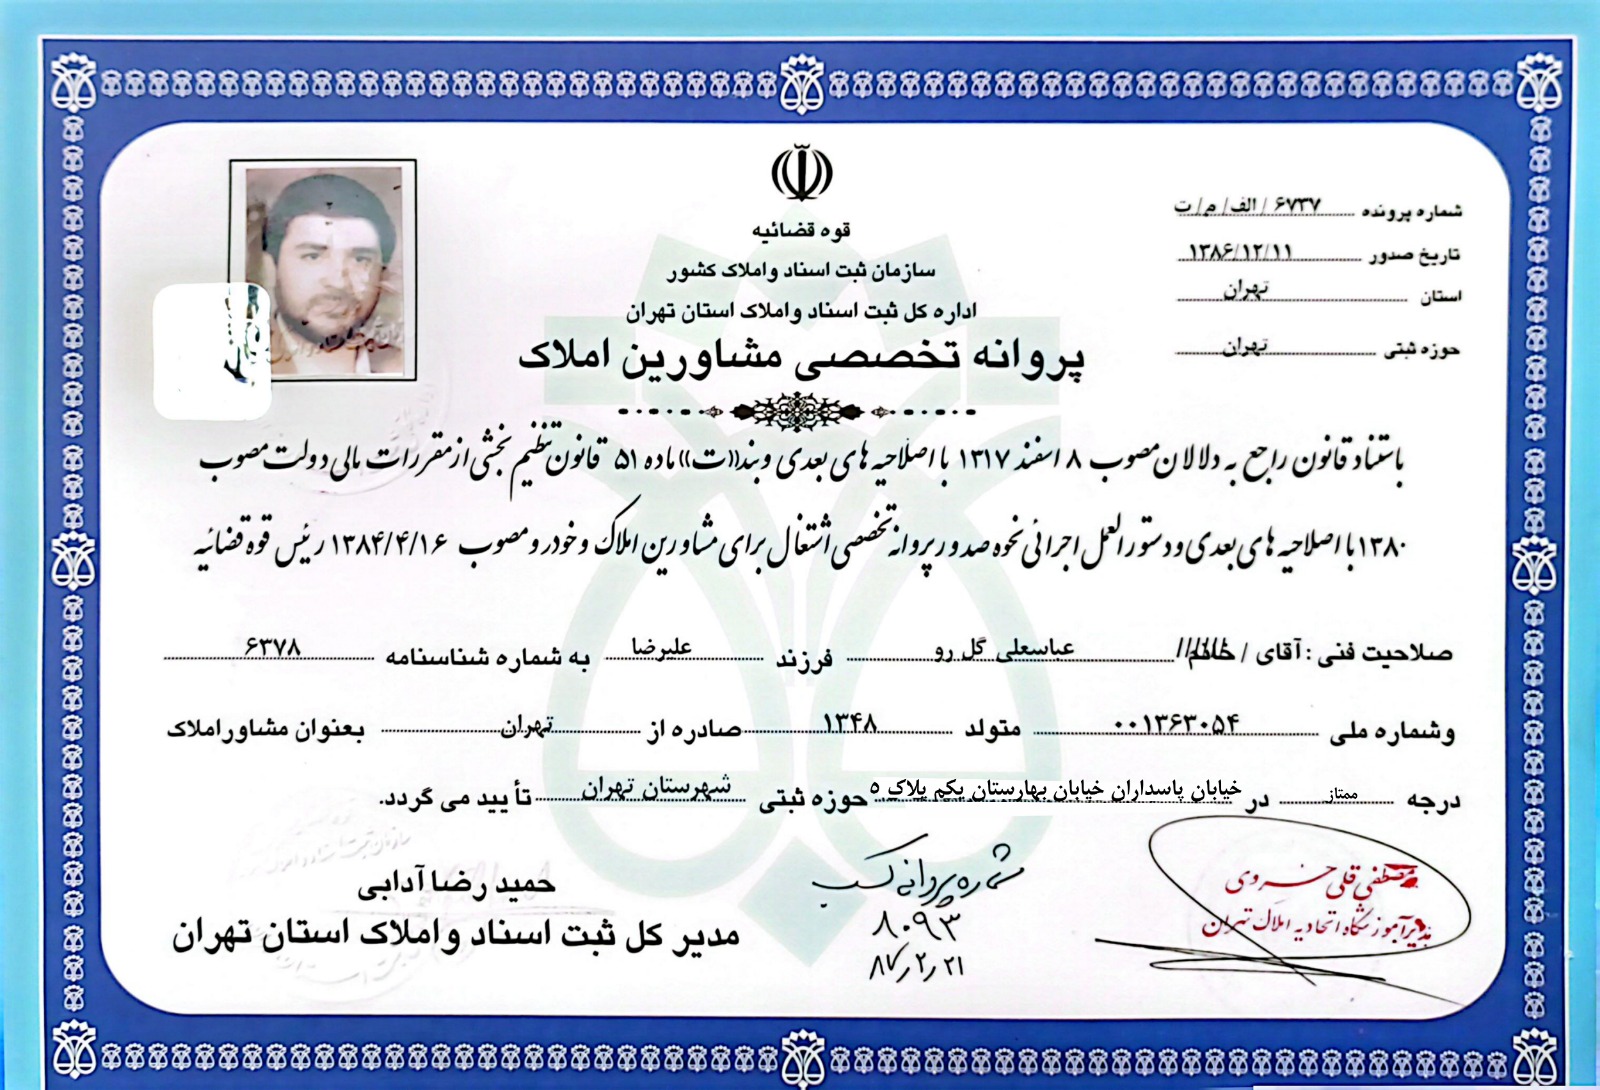 قوه قضائیه
سازمان ثبت اسناد و املاک کشور
اداره کل ثبت اسناد و املاک استان تهران
پروانه تخصصی مشاورین املاک
شماره پرونده ۶۷۳۷/الف/م/ت
تاریخ صدور ۱۳۸۶/۱۲/۱۱
استان تهران
حوزه ثبتی تهران
باستناد قانون راجع به دلالان مصوب ۸ اسفند ۱۳۱۷ با اصلاحیه های بعدی و بند «ت» ماده ۵۱ قانون تنظیم بخشی از مقررات مالی دولت مصوب
۱۳۸۰ با اصلاحیه های بعدی و دستورالعمل اجرائی نحوه صدور پروانه تخصصی اشتغال برای مشاورین املاک و خودرو مصوب ۱۳۸۴/۴/۱۶ رئیس قوه قضائیه
صلاحیت فنی : آقای / خانم عباسعلی گل رو فرزند علیرضا به شماره شناسنامه ۶۳۷۸
وشماره ملی ۰۰۱۳۶۳۰۵۴ متولد ۱۳۴۸ صادره از تهران بعنوان مشاور املاک
درجه ممتاز در خیابان پاسداران خیابان بهارستان یکم پلاک ۵ حوزه ثبتی شهرستان تهران تأیید می گردد.
مصطفی قلی خسروی
مدیر آموزشگاه اتحادیه املاک تهران
شماره پروانه کسب
۸۰۹۳
۸۷/۲/۲۱
حمید رضا آدابی
مدیر کل ثبت اسناد و املاک استان تهران